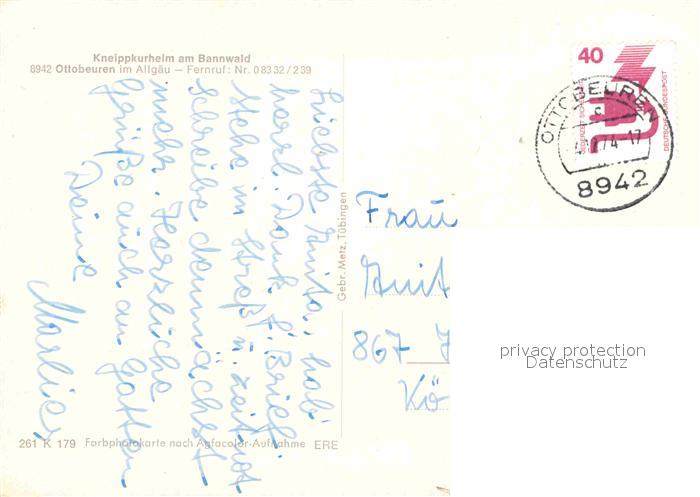 Kneippkurheim am Bannwald
8942 Ottobeuren im Allgäu – Fernruf: Nr. 08332/239
Liebste Anita, hab'
herzl. Dank f. Brief.
Stehe in Streß u. Zeitnot
schreibe demnächst
mehr. Herzliche
Grüße auch an Gatten
Deine
Marlies
Gebr. Metz, Tübingen
261 K 179 Farbphotokarte nach Agfacolor-Aufnahme ERE
40
JEDERZEIT SICHERHEIT
DEUTSCHE BUNDESPOST
OTTOBEUREN
c
74-17
8942
Frau
Anit
867
Kö
privacy protection
Datenschutz